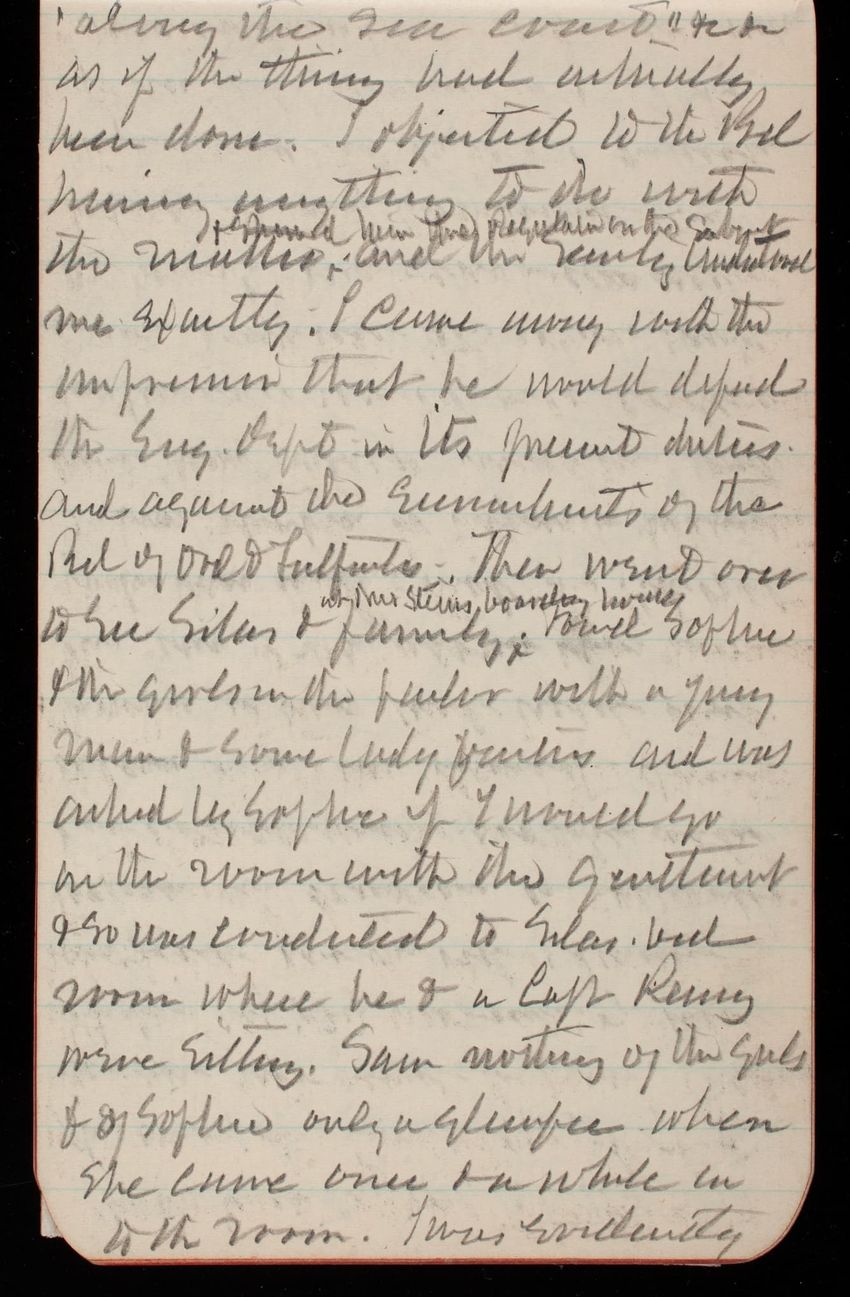 "along the Sea Coast" &c &c
as if the thing had actually
been done. I objected to the Bd
having anything to do with
+ & showed him the Regulation on the Subject
the matter, + and the Secretary understood
me Exactly. I came away with the
impression that he would defend
the Eng. Dept in its present duties
and against the Encroachments of the
Bd of Ord & Fortfts. Then went over
at Mrs Steins boarding house
to See Silas & family, x found Sophie
& the girls in the parlor with a young
man & Some lady parties and was
asked by Sophie if I would go
in the room with the gentlemen
& So was conducted to Silas' bed
room where he & a Capt
were Sitting. Saw nothing of the girls
& of Sophie only a glimpse when
She came once & a while in
to the room. I was Evidently